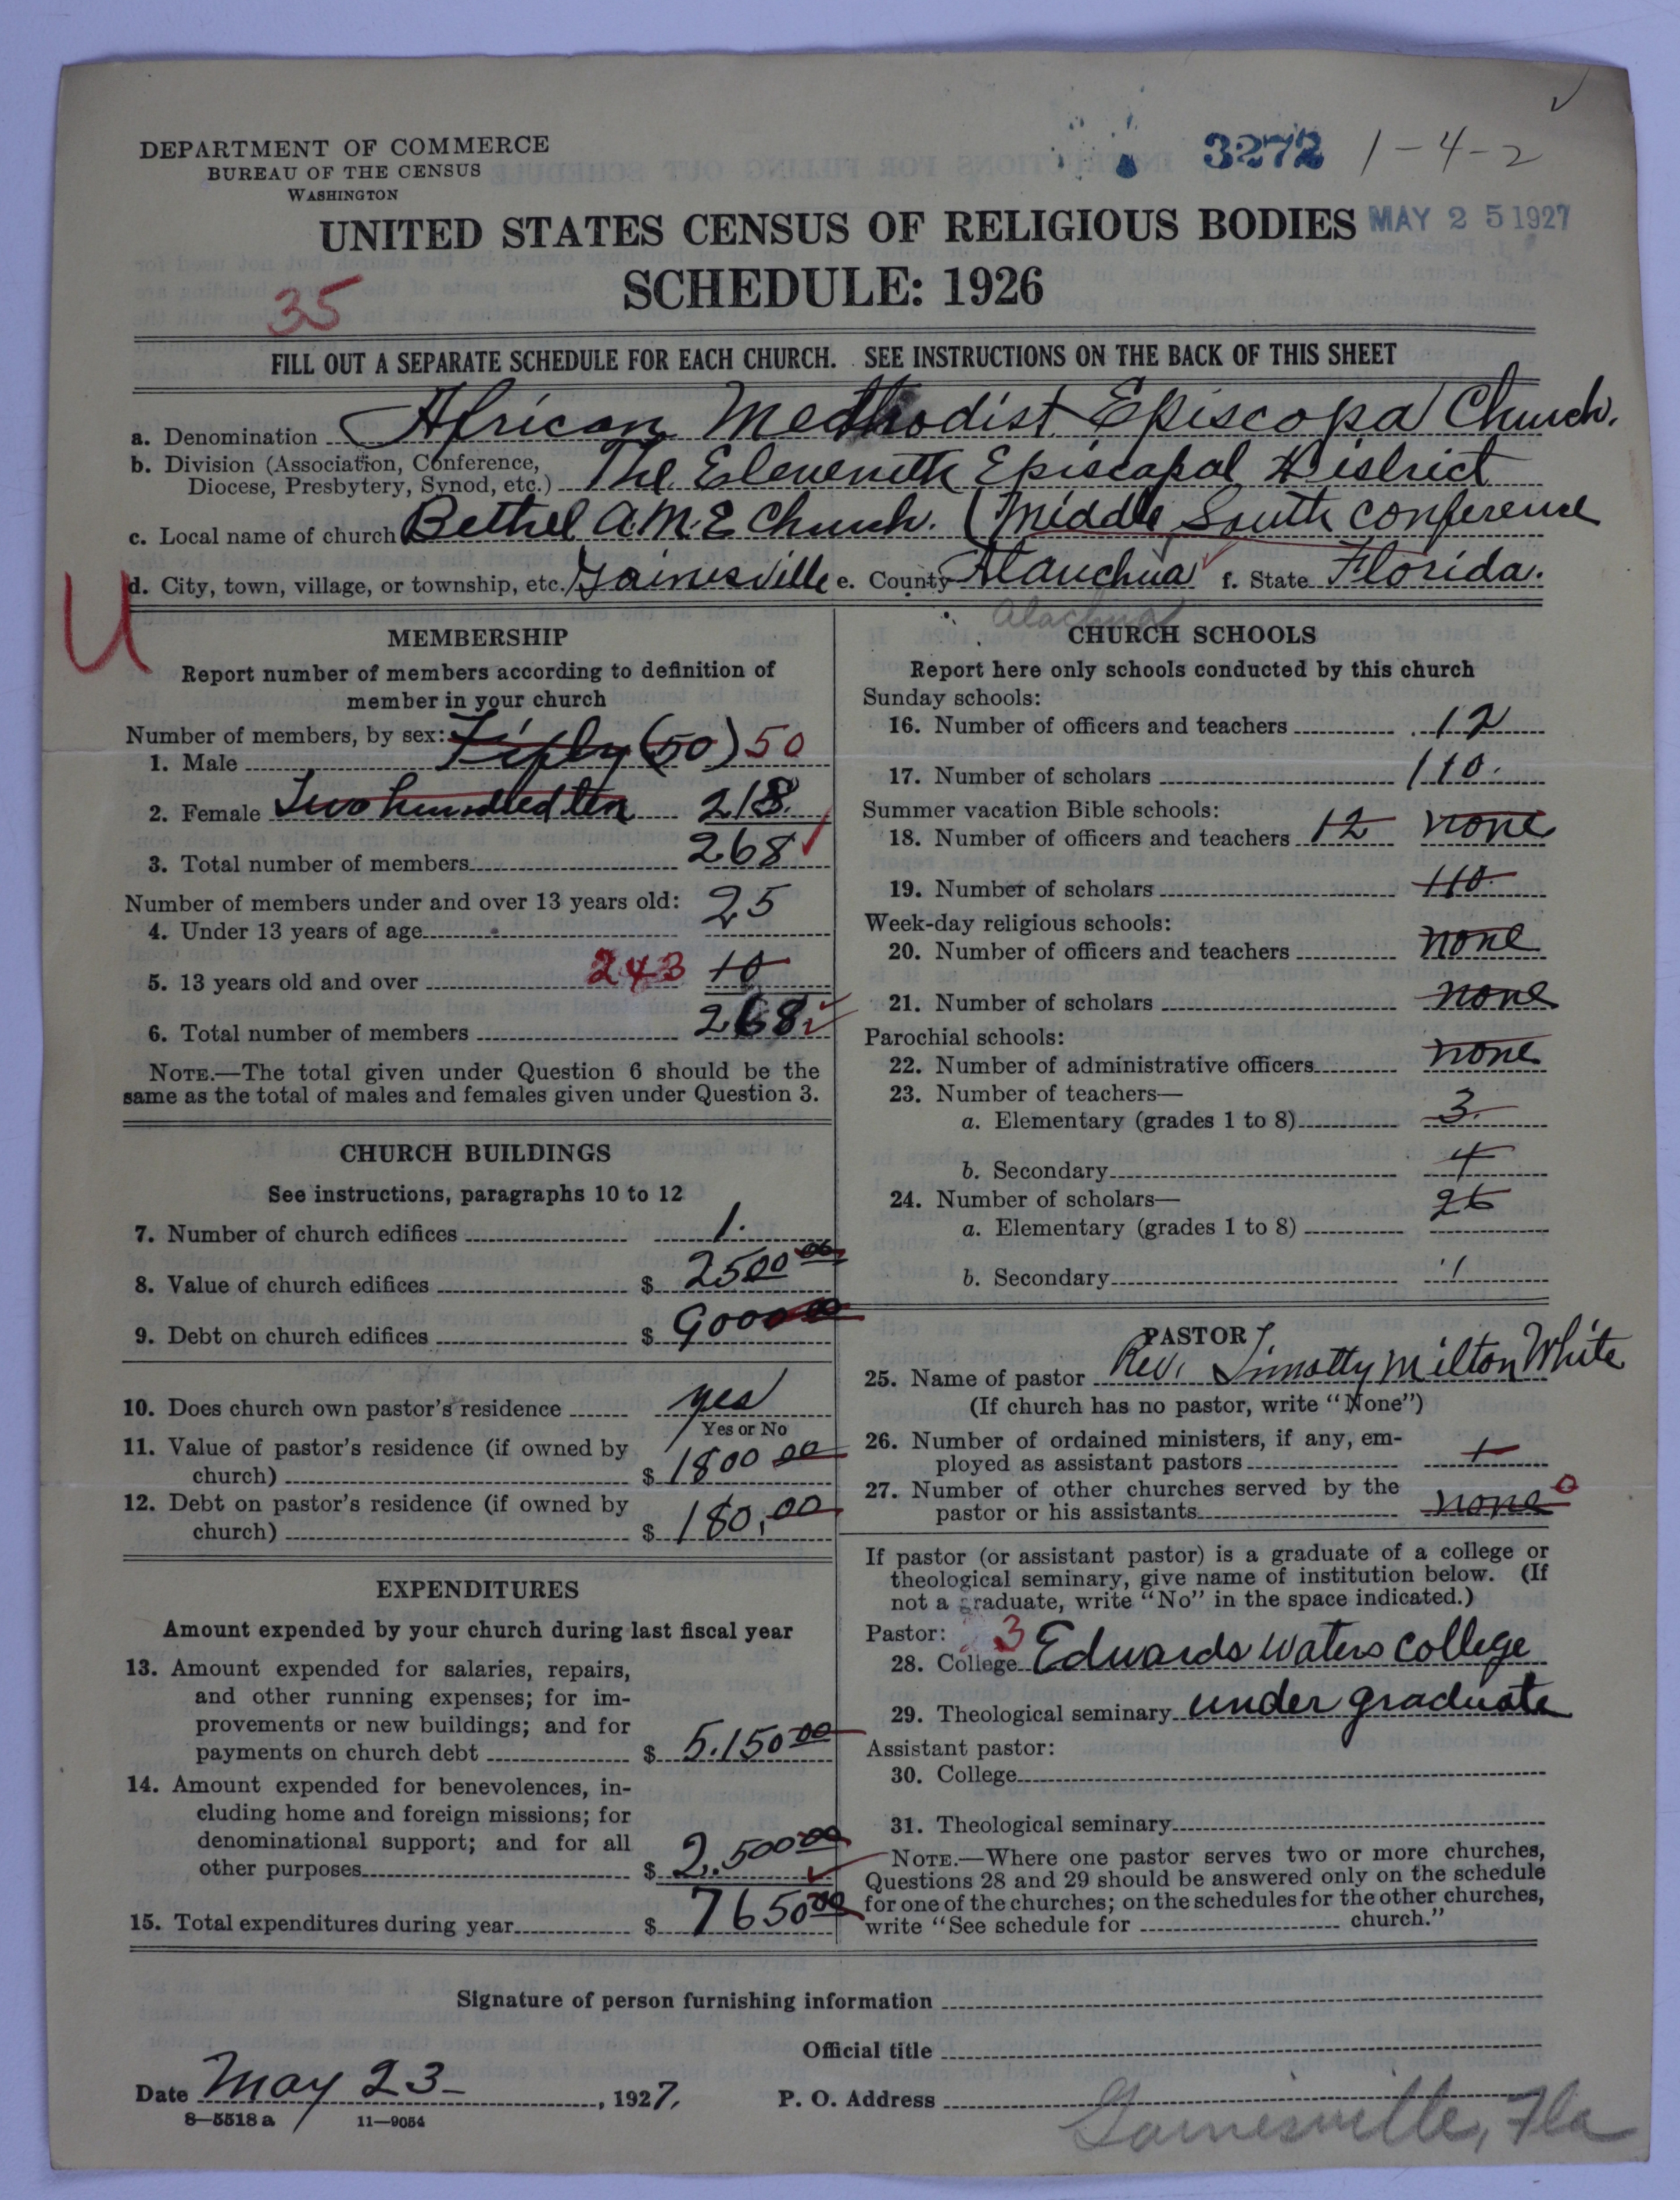 DEPARTMENT OF COMMERCE
BUREAU OF THE CENSUS
WASHINGTON
3272 1-4-2
UNITED STATES CENSUS OF RELIGIOUS BODIES MAY 25 1927
SCHEDULE: 1926
35
FILL OUT A SEPARATE SCHEDULE FOR EACH CHURCH. SEE INSTRUCTIONS ON THE BACK OF THIS SHEET
a. Denomination African Methodist Episcopal Church.
b. Division (Association, Conference,
Diocese, Presbytery, Synod, etc.) The Eleventh Episcopal District
c. Local name of church Bethel A.M.E Church. (Middle South conference
d. City, town, village, or township, etc. Gainesville e. County Alauchua f. State Florida.
Alachua
U
MEMBERSHIP
Report number of members according to definition of
member in your church
Number of members, by sex:
1. Male Fifty (50) 50
2. Female Two hundred ten 218
3. Total number of members 268
Number of members under and over 13 years old:
4. Under 13 years of age 25
5. 13 years old and over 243 10
6. Total number of members 268
NOTE.—The total given under Question 6 should be the
same as the total of males and females given under Question 3.
CHURCH BUILDINGS
See instructions, paragraphs 10 to 12
7. Number of church edifices 1.
8. Value of church edifices $ 2500 00
9. Debt on church edifices $ 900 00
10. Does church own pastor's residence yes
Yes or No
11. Value of pastor's residence (if owned by
church) $ 1800 00
12. Debt on pastor's residence (if owned by
church) $ 180.00
EXPENDITURES
Amount expended by your church during last fiscal year
13. Amount expended for salaries, repairs,
and other running expenses; for im-
provements or new buildings; and for
payments on church debt $ 5.150 00
14. Amount expended for benevolences, in-
cluding home and foreign missions; for
denominational support; and for all
other purposes $ 2.500 00
15. Total expenditures during year $ 7650 00
CHURCH SCHOOLS
Report here only schools conducted by this church
Sunday schools:
16. Number of officers and teachers 12
17. Number of scholars 110.
Summer vacation Bible schools:
18. Number of officers and teachers 12 none
19. Number of scholars 110
Week-day religious schools:
20. Number of officers and teachers none
21. Number of scholars none
Parochial schools:
22. Number of administrative officers none
23. Number of teachers—
a. Elementary (grades 1 to 8) 3
b. Secondary 4
24. Number of scholars—
a. Elementary (grades 1 to 8) 26
b. Secondary 1
PASTOR
25. Name of pastor Rev. Timothy Milton White
(If church has no pastor, write "None")
26. Number of ordained ministers, if any, em-
ployed as assistant pastors 1
27. Number of other churches served by the
pastor or his assistants none 0
If pastor (or assistant pastor) is a graduate of a college or
theological seminary, give name of institution below. (If
not a graduate, write "No" in the space indicated.)
Pastor: 3
28. College Edwards Waters College
29. Theological seminary under graduate
Assistant pastor:
30. College
31. Theological seminary
NOTE.—Where one pastor serves two or more churches,
Questions 28 and 29 should be answered only on the schedule
for one of the churches; on the schedules for the other churches,
write "See schedule for church."
Signature of person furnishing information
Official title
Date May 23 , 1927. P. O. Address
Gainesville, Fla
8—5518 a 11—9054